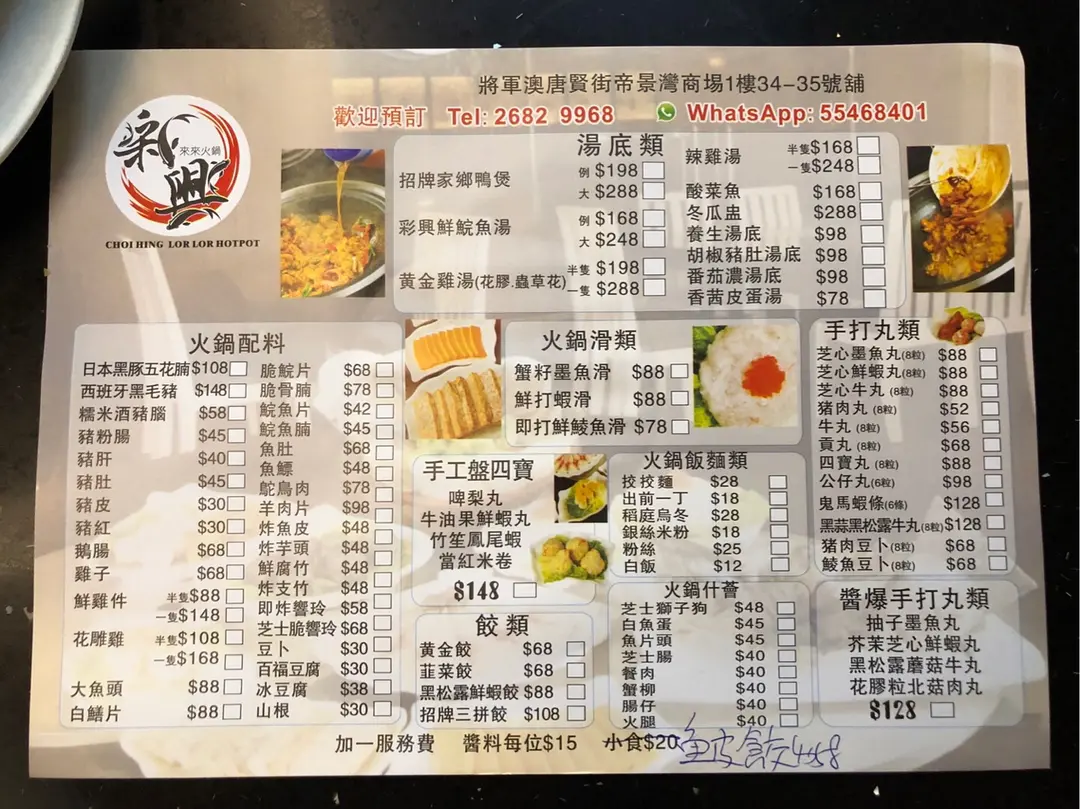 將軍澳唐賢街帝景灣商場1樓34-35號舖
歡迎預訂 Tel: 2682 9968 WhatsApp: 55468401
彩興
來來火鍋
CHOI HING LOR LOR HOTPOT
湯底類
招牌家鄉鴨煲 例 $198
大 $288
彩興鮮鯇魚湯 例 $168
大 $248
黄金雞湯(花膠.蟲草花) 半隻 $198
一隻 $288
辣雞湯 半隻$168
一隻$248
酸菜魚 $168
冬瓜盅 $288
養生湯底 $98
胡椒豬肚湯底 $98
番茄濃湯底 $98
香茜皮蛋湯 $78
火鍋配料
日本黑豚五花腩$108
西班牙黑毛豬 $148
糯米酒豬腦 $58
豬粉腸 $45
豬肝 $40
豬肚 $45
豬皮 $30
豬紅 $30
鵝腸 $68
雞子 $68
鮮雞件 半隻$88
一隻$148
花雕雞 半隻$108
一隻$168
大魚頭 $88
白鱔片 $88
脆鯇片 $68
脆骨腩 $78
鯇魚片 $42
鯇魚腩 $45
魚肚 $68
魚鰾 $48
鴕鳥肉 $78
羊肉片 $98
炸魚皮 $48
炸芋頭 $48
鮮腐竹 $48
炸支竹 $48
即炸響玲 $58
芝士脆響玲 $68
豆卜 $30
百福豆腐 $30
冰豆腐 $38
山根 $30
火鍋滑類
蟹籽墨魚滑 $88
鮮打蝦滑 $88
即打鮮鯪魚滑 $78
手工盤四寶
啤梨丸
牛油果鮮蝦丸
竹笙鳳尾蝦
當紅米卷
$148
餃類
黄金餃 $68
韮菜餃 $68
黑松露鮮蝦餃 $88
招牌三拼餃 $108
火鍋飯麵類
挍挍麵 $28
出前一丁 $18
稻庭烏冬 $28
銀絲米粉 $18
粉絲 $25
白飯 $12
火鍋什薈
芝士獅子狗 $48
白魚蛋 $45
魚片頭 $45
芝士腸 $40
餐肉 $40
蟹柳 $40
腸仔 $40
火腿 $40
手打丸類
芝心墨魚丸(8粒) $88
芝心鮮蝦丸(8粒) $88
芝心牛丸(8粒) $88
猪肉丸(8粒) $52
牛丸(8粒) $56
貢丸(8粒) $68
四寶丸(8粒) $88
公仔丸(6粒) $98
鬼馬蝦條(6條) $128
黑蒜黑松露牛丸(8粒)$128
豬肉豆卜(8粒) $68
鯪魚豆卜(8粒) $68
醬爆手打丸類
抽子墨魚丸
芥茉芝心鮮蝦丸
黑松露蘑菇牛丸
花膠粒北菇肉丸
$128
加一服務費 醬料每位$15 小食$20
魚皮餃$58